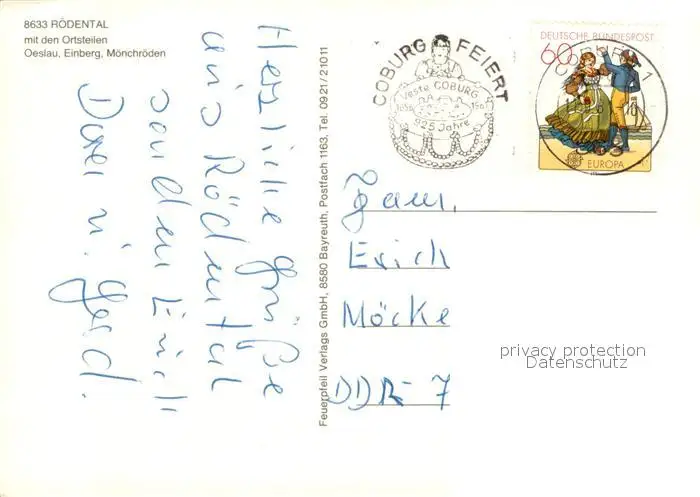 8633 RÖDENTAL
mit den Ortsteilen
Oeslau, Einberg, Mönchröden
Herzliche Grüße
aus Rödental
senden Erich
Dora u. Gerd.
Feuerpfeil Verlags GmbH, 8580 Bayreuth, Postfach 1163, Tel. 0921/21011
COBURG FEIERT
Veste COBURG
1056
925 Jahre
DEUTSCHE BUNDESPOST
60
EUROPA
Fam.
Erich
Möcke
DDR-7
privacy protection
Datenschutz